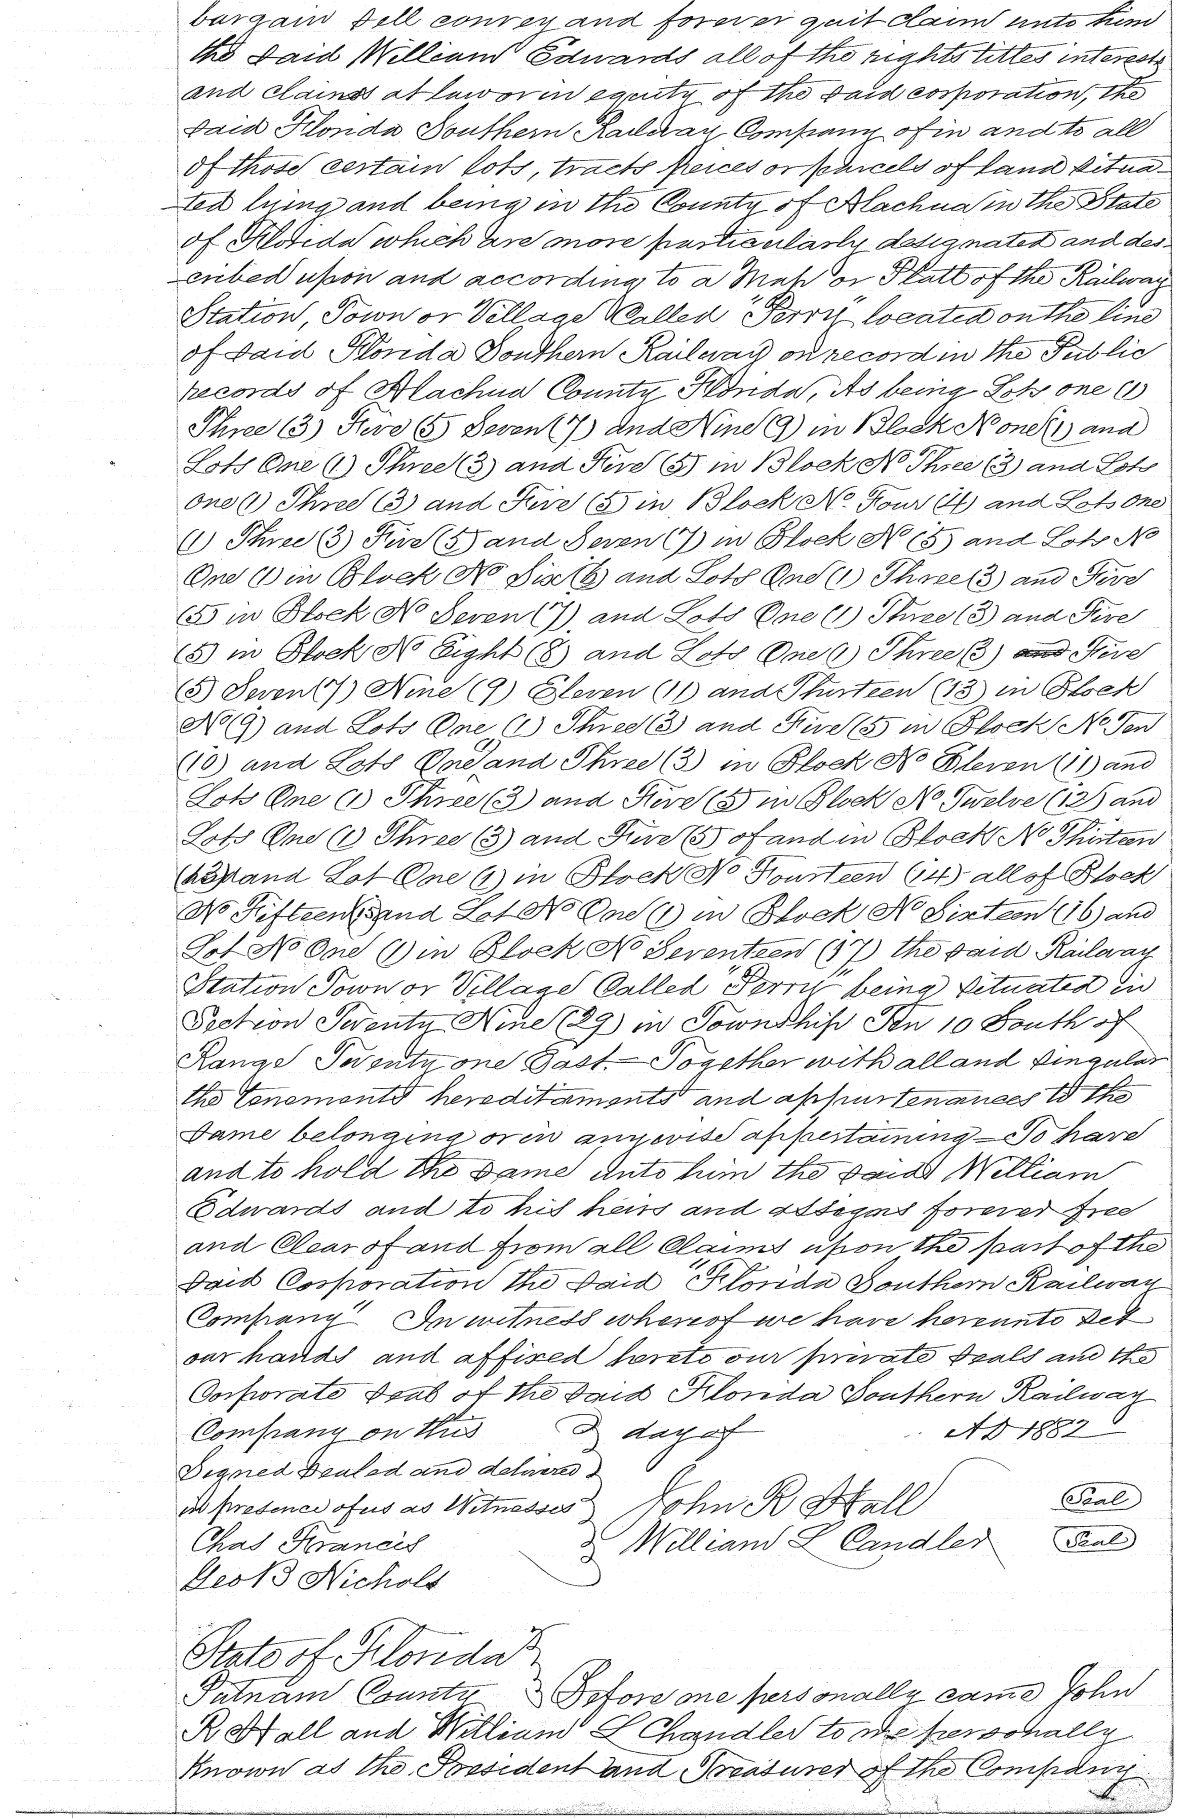 bargain sell convey and forever quit claim unto him
the said William Edwards all of the rights tittes interests
and claims at law or in equity of the said corporation, the
said Florida Southern Railway Company of in and to all
of those certain lots, tracts peices or parcels of land situa-
ted lying and being in the County of Alachua in the State
of Florida which are more particularly designated and des-
cribed upon and according to a Map or Platt of the Railway
Station, Town or Village Called "Perry" located on the line
of said Florida Southern Railway on record in the Public
records of Alachua County Florida, As being Lots one (1)
Three (3) Five (5) Seven (7) and Nine (9) in Block N one (1) and
Lots One (1) Three (3) and Five (5) in Block No Three (3) and Lots
one (1) Three (3) and Five (5) in Block No. Four (4) and Lots One
(1) Three (3) Five (5) and Seven (7) in Block No (5) and Lots No
One (1) in Block No Six (6) and Lots One (1) Three (3) and Five
(5) in Block No Seven (7) and Lots One (1) Three (3) and Five
(5) in Block No Eight (8) and Lots One (1) Three (3) and Five
(5) Seven (7) Nine (9) Eleven (11) and Thirteen (13) in Block
No (9) and Lots One (1) Three (3) and Five (5) in Block No Ten
(10) and Lots One (1) and Three (3) in Block No Eleven (11) and
Lots One (1) Three (3) and Five (5) in Block No Twelve (12) and
Lots One (1) Three (3) and Five (5) of and in Block No Thirteen
(13) and Lot One (1) in Block No Fourteen (14) all of Block
No Fifteen (15) and Lot No One (1) in Block No Sixteen (16) and
Lot No One (1) in Block No Seventeen (17) the said Railway
Station Town or Village Called "Perry" being situated in
Section Twenty Nine (29) in Township Ten 10 South of
Range Twenty one East.- Together with all and singular
the tenements hereditaments and appurtenances to the
same belonging or in anywise appertaining - To have
and to hold the same unto him the said William
Edwards and to his heirs and assigns forever free
and Clear of and from all Claims upon the part of the
said Corporation the said "Florida Southern Railway
Company" In witness whereof we have hereunto set
our hands and affixed hereto our private seals and the
Corporate seal of the said Florida Southern Railway
Company on this day of AD 1882
Signed Sealed and delivered
in presence of us as Witnesses John R Hall Seal
Chas Francis William L Candler Seal
Geo B Nichols
State of Florida
Putnam County Before me personally came John
R Hall and William L Chandler to me personally
Known as the President and Treasurer of the Company